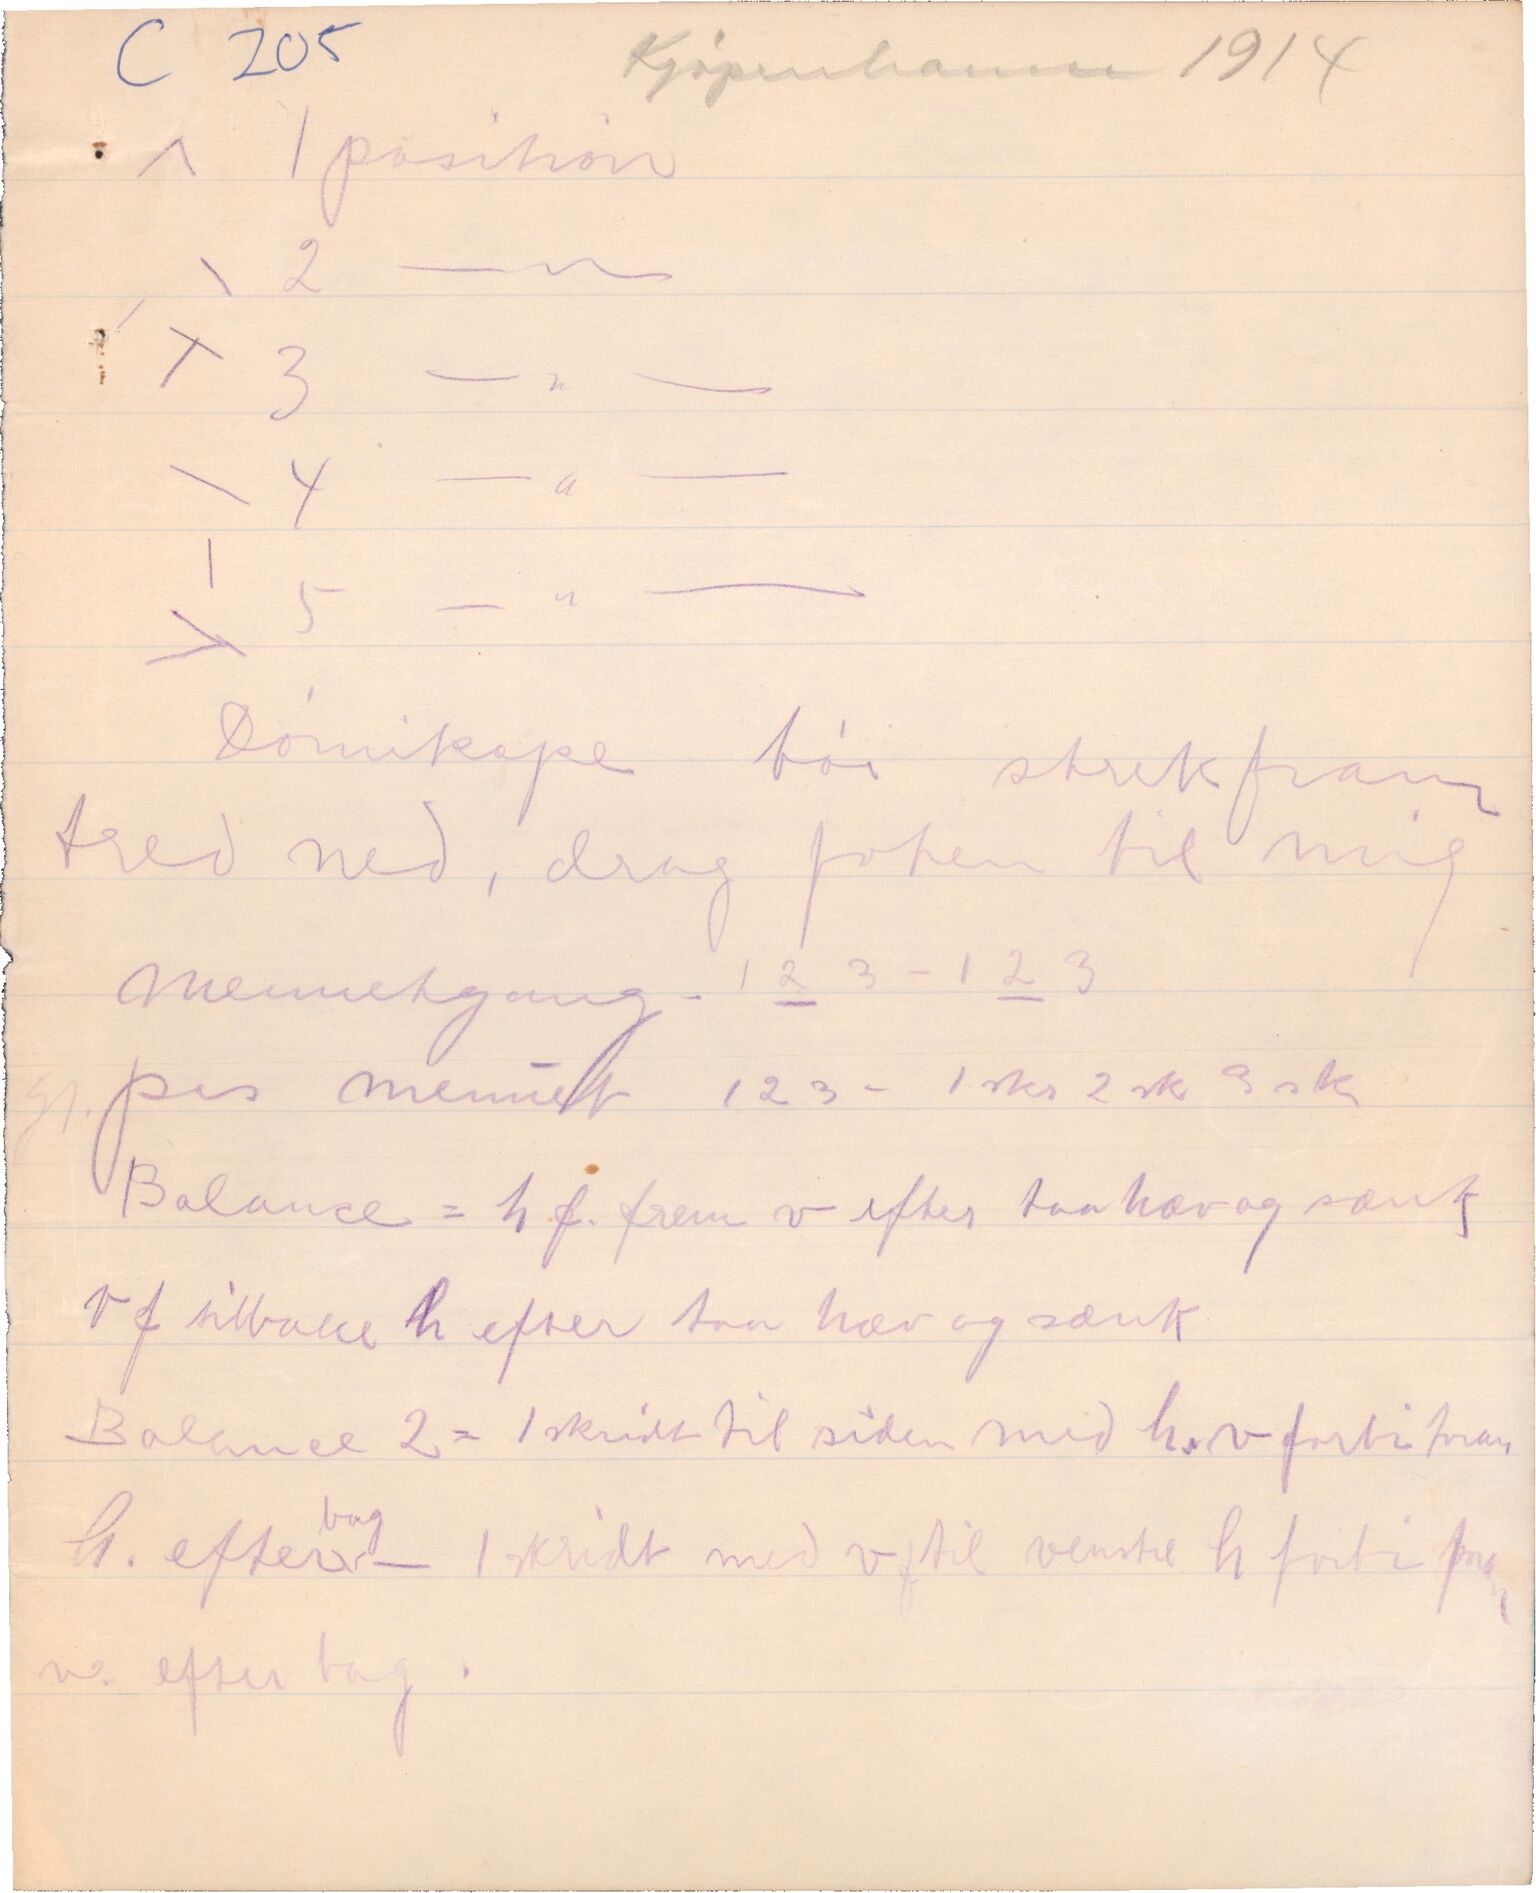 C 205 Kjøpenhamn 1914
1 position
2 — " —
3 — " —
4 — " —
5 — " —
bøi strek fram
tred ned, drag foten til mig
Mennuetgang - 1 2 3 - 1 2 3
pas menuet 1 2 3 - 1 skr 2 sk 3 sk
Balance = h f. frem v efter taa hæv og sænk
v f tilbake h efter taa hæv og sænk
Balance 2 = 1 skridt til siden med h. v forbi foran
h. efter bag — 1 skridt med v f til venstre h forbi foran
v. efter bag.